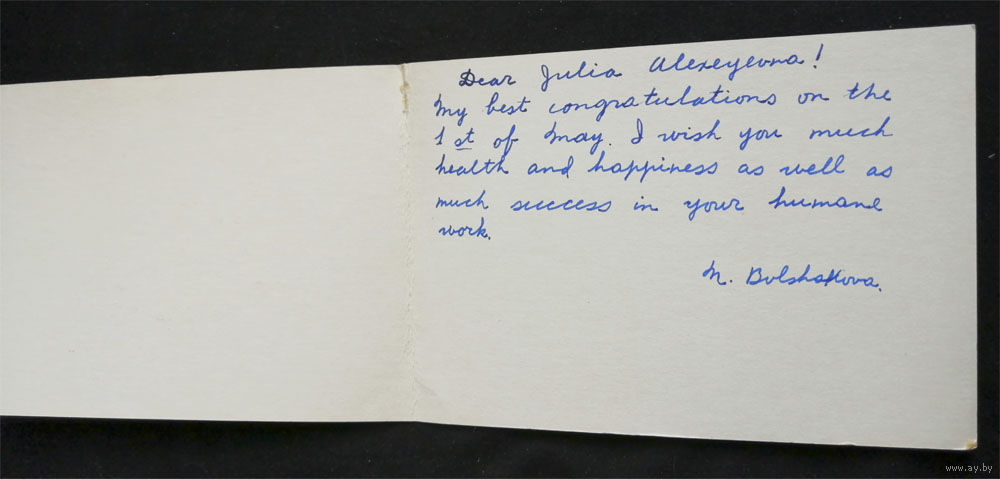 Dear Julia Alexeyevna!
My best congratulations on the
1st of May. I wish you much
health and happiness as well as
much success in your humane
work.
M. Bolshakova.
www.ay.by